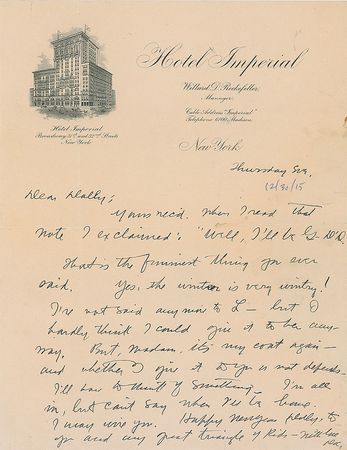 Hotel Imperial
Willard D. Rockefeller,
Manager.
Cable Address "Imperial"
Telephone 6100, Madison.
Hotel Imperial
Broadway 31st and 32nd Streets
New York
New York
Thursday Eve.
12/30/15
Dear Dolly;
Yours rec'd. When I read that
note I exclaimed: "Well, I'll be G- D'D.
That is the funniest thing you ever
said. Yes, the writer is very wintry!
I've not said anymore to L- but I
hardly think I could give it to her any-
way. But, Madam, it's my coat again-
and whether I give it to you is not
I'll have to think of something. I'm all
in, but can't say when I'll be home.
I may wire you. Happy New year Dolly, to
you and my great triangle of Kids -